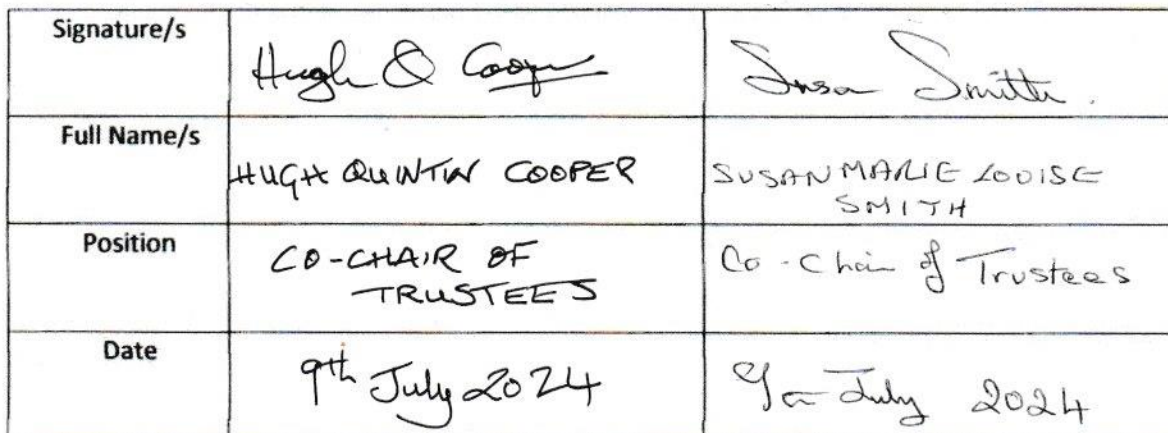 Signature/s Hugh Q Cooper Susan Smith.
Full Name/s HUGH QUINTIN COOPER SUSAN MARIE LOUISE
SMITH
Position CO-CHAIR OF Co-Chair of Trustees
TRUSTEES
Date 9th July 2024 9th July 2024